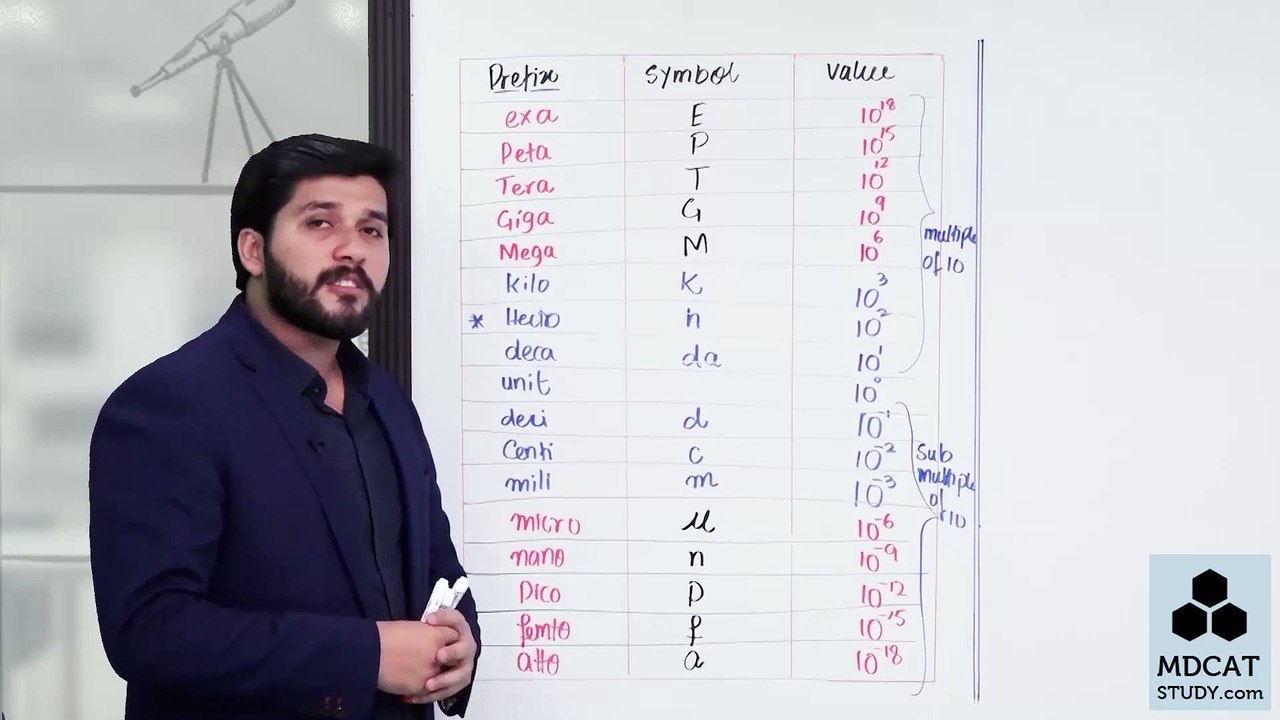 Prefix Symbol Value
exa E 10¹⁸
Peta P 10¹⁵
Tera T 10¹²
Giga G 10⁹
Mega M 10⁶
kilo K 10³
* Hecto h 10²
deca da 10¹
unit 10⁰
deci d 10⁻¹
Centi c 10⁻²
mill m 10⁻³
micro μ 10⁻⁶
nano n 10⁻⁹
Pico P 10⁻¹²
femto f 10⁻¹⁵
atto a 10⁻¹⁸
multiple
of 10
Sub
multiple
of
10
MDCAT
STUDY.com